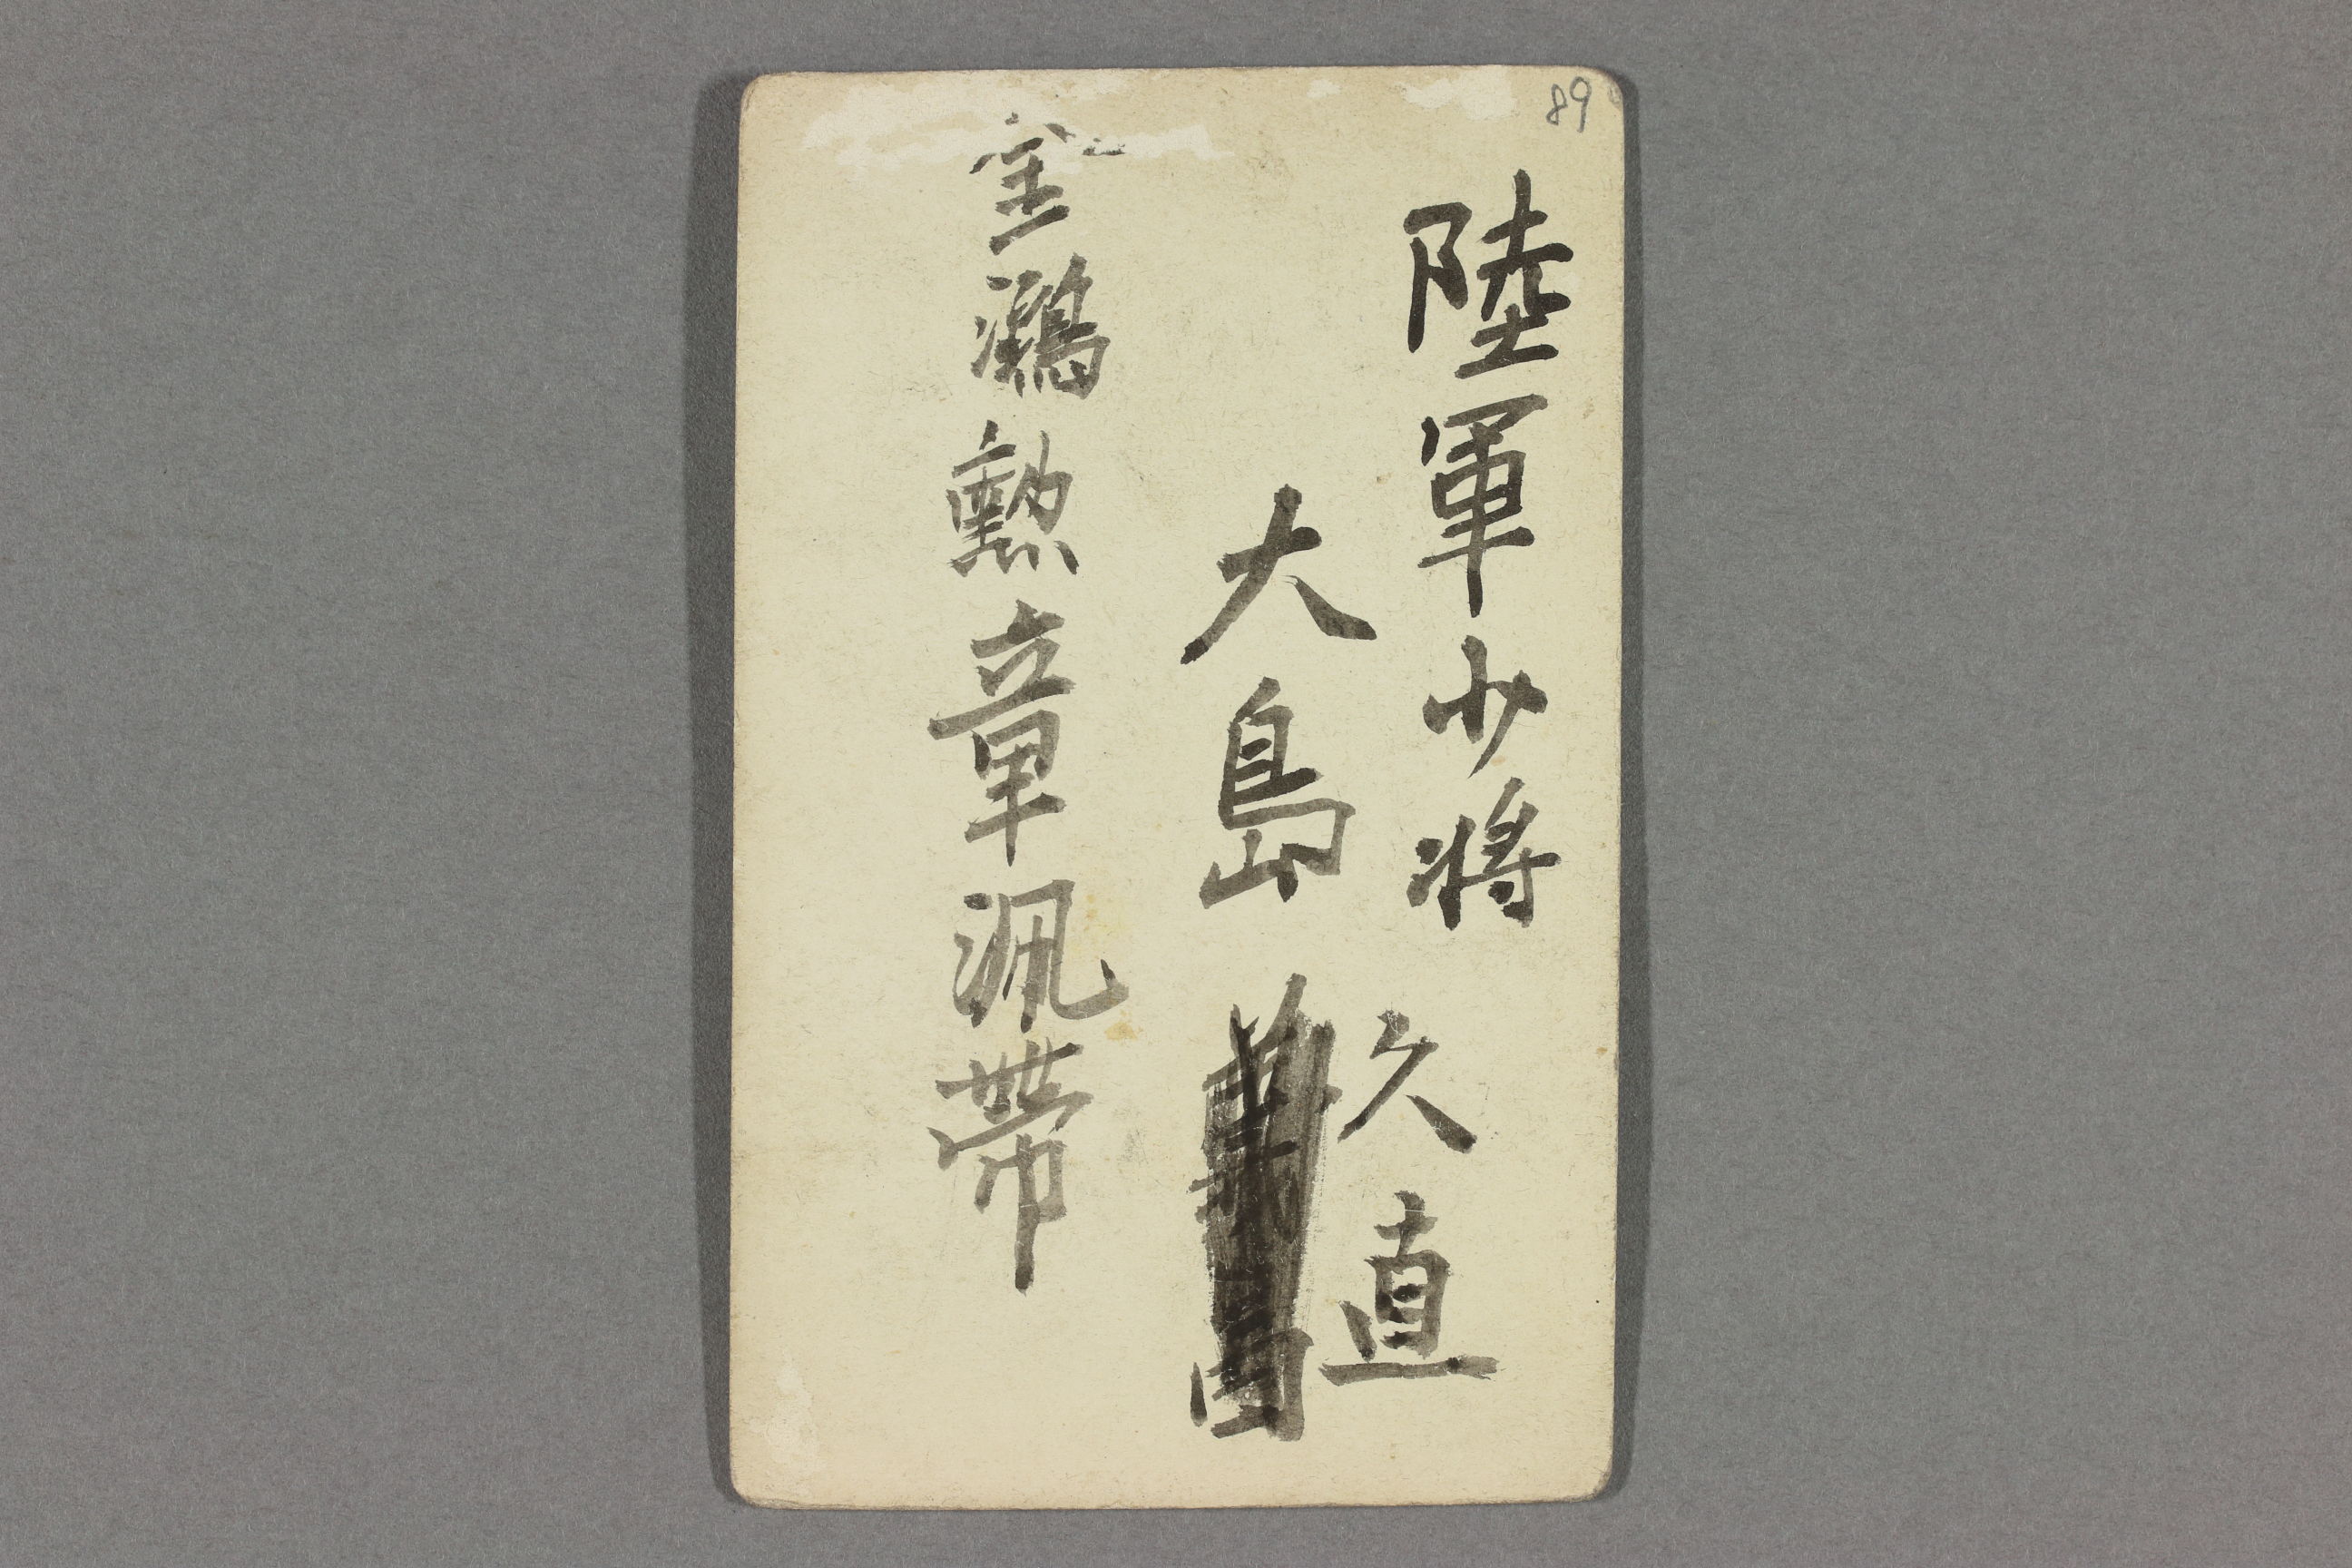 89
陸軍少将
久直
大島
金鵄勲章佩帯